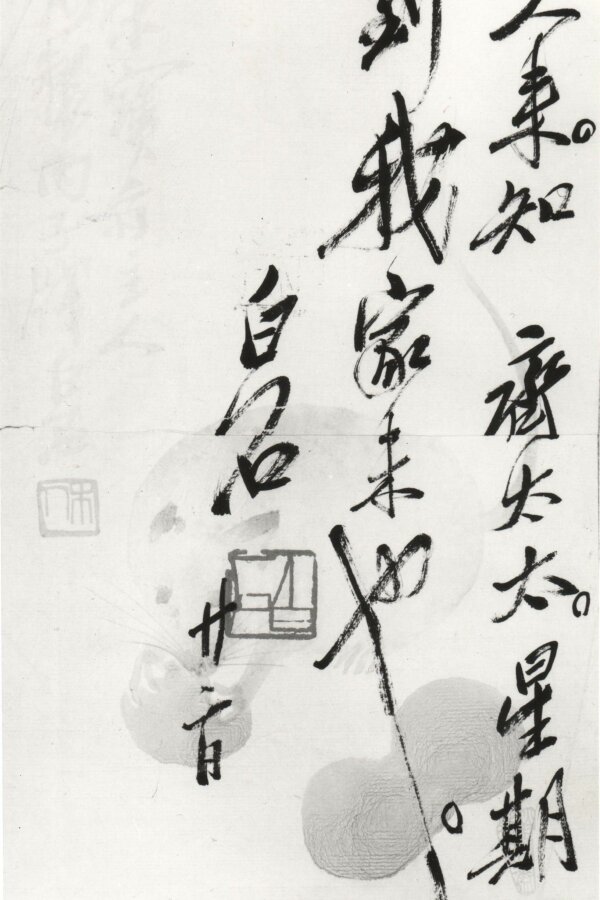 人来。知齊太太。星期
到我家来也。
白石
廿二日